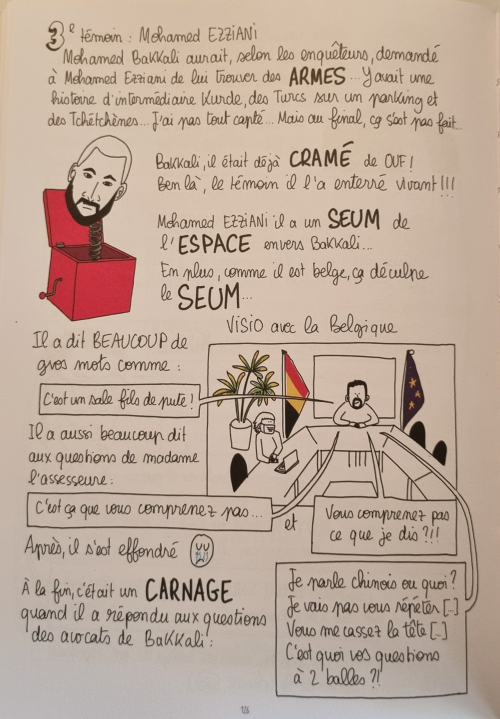 3e témoin : Mohamed EZZiANi
Mohamed BaKKali aurait, selon les enquêteurs, demandé
à Mohamed Ezziani de lui trouver des ARMES... Y avait une
histoire d'intermédiaire Kurde, des Turcs sur un parking et
des Tchétchènes... J'ai pas tout capté... Mais au final, ça s'est pas fait...
BaKKali, il était déjà CRAMÉ de OUF !
Ben là, le témoin il l'a enterré vivant !!!
Mohamed EZZiANi il a un SEUM de
l'ESPACE envers BaKKali...
En plus, comme il est belge, ça décuple
le SEUM...
ViSiO avec la Belgique
Il a dit BEAUCOUP de
gros mots comme :
C'est un sale fils de pute !
Il a aussi beaucoup dit
aux questions de madame
l'assesseure :
C'est ça que vous comprenez pas...
et
Vous comprenez pas
ce que je dis ?!!
Après, il s'est effondré
À la fin, c'était un CARNAGE
quand il a répondu aux questions
des avocats de BaKKali :
Je parle chinois ou quoi ?
Je vais pas vous répéter [..]
Vous me cassez la tête [..]
C'est quoi vos questions
à 2 balles ?!
126